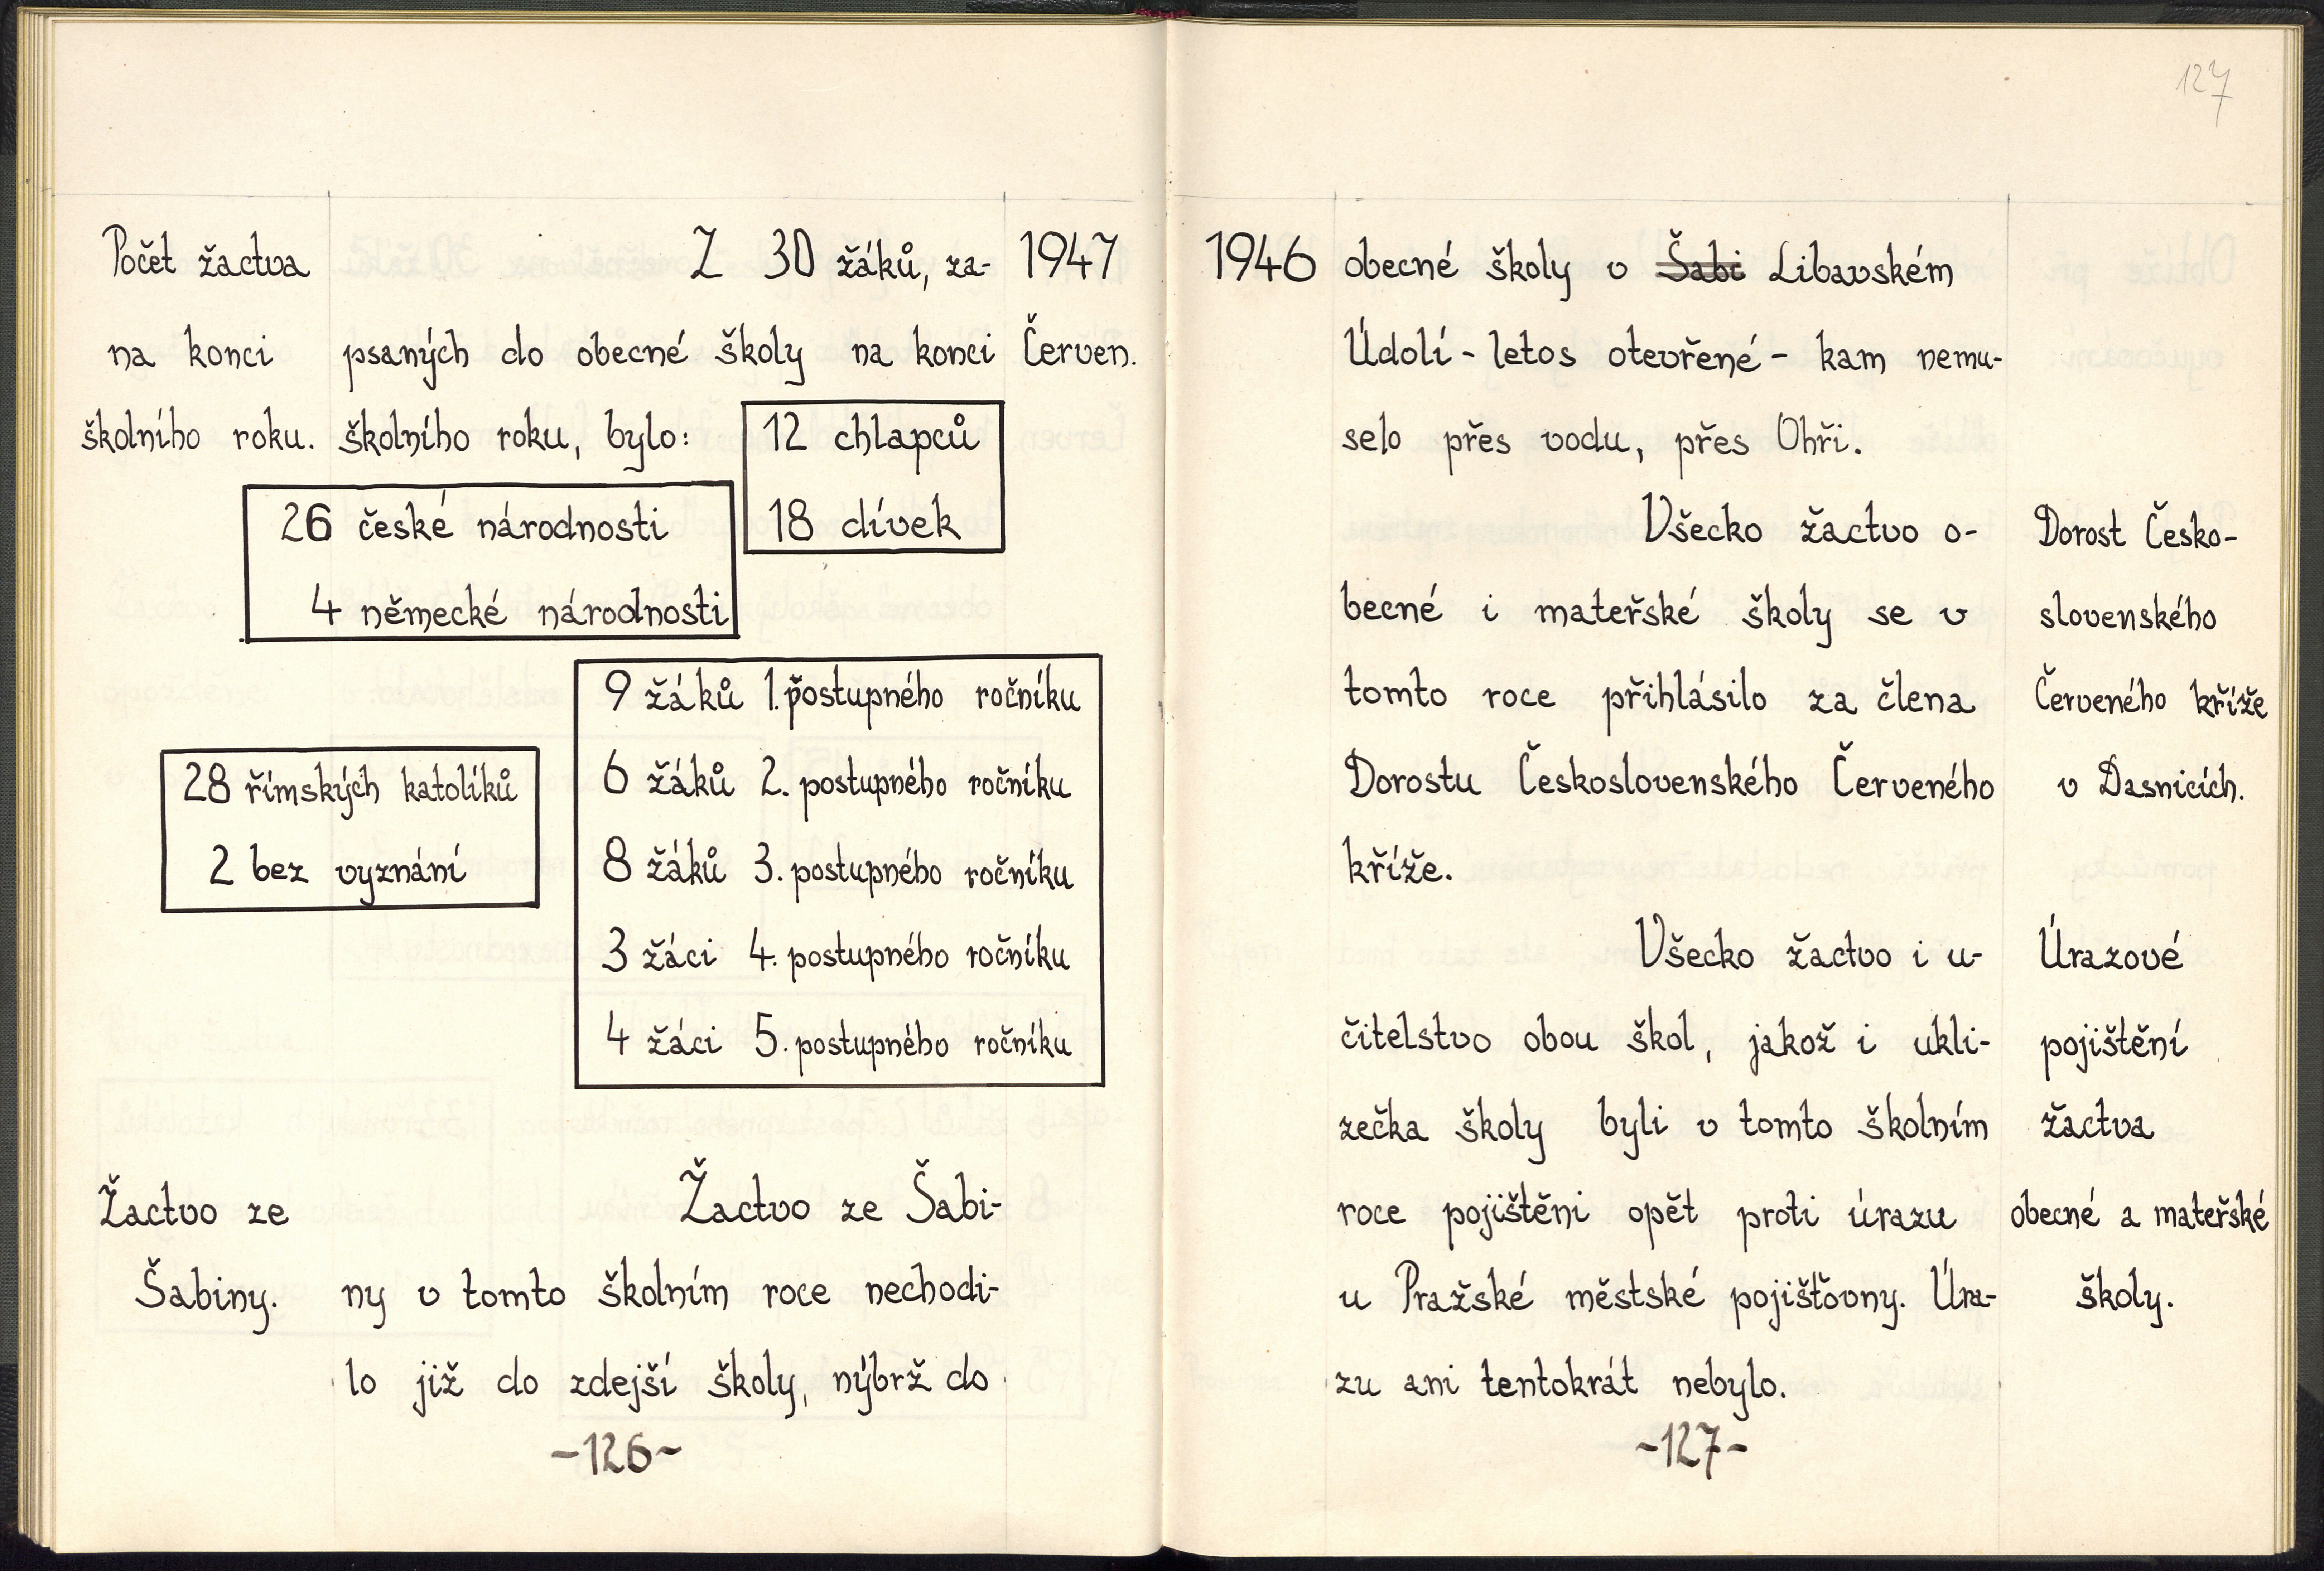 127
Počet žactva
na konci
školního roku.
Z 30 žáků, za-
psaných do obecné školy na konci
školního roku, bylo:
1947
Červen.
12 chlapců
18 dívek
26 české národnosti
4 německé národnosti
9 žáků 1. postupného ročníku
6 žáků 2. postupného ročníku
8 žáků 3. postupného ročníku
3 žáci 4. postupného ročníku
4 žáci 5. postupného ročníku
28 římských katolíků
2 bez vyznání
Žactvo ze
Šabiny.
Žactvo ze Šabi-
ny v tomto školním roce nechodi-
lo již do zdejší školy, nýbrž do
-126-
1946
obecné školy v Šabi Libavském
Údolí - letos otevřené - kam nemu-
selo přes vodu, přes Ohři.
Všecko žactvo o-
becné i mateřské školy se v
tomto roce přihlásilo za člena
Dorostu Československého Červeného
kříže.
Dorost Česko-
slovenského
Červeného kříže
v Dasnicích.
Všecko žactvo i u-
čitelstvo obou škol, jakož i ukli-
zečka školy byli v tomto školním
roce pojištěni opět proti úrazu
u Pražské městské pojišťovny. Úra-
zu ani tentokrát nebylo.
Úrazové
pojištění
žactva
obecné a mateřské
školy.
-127-